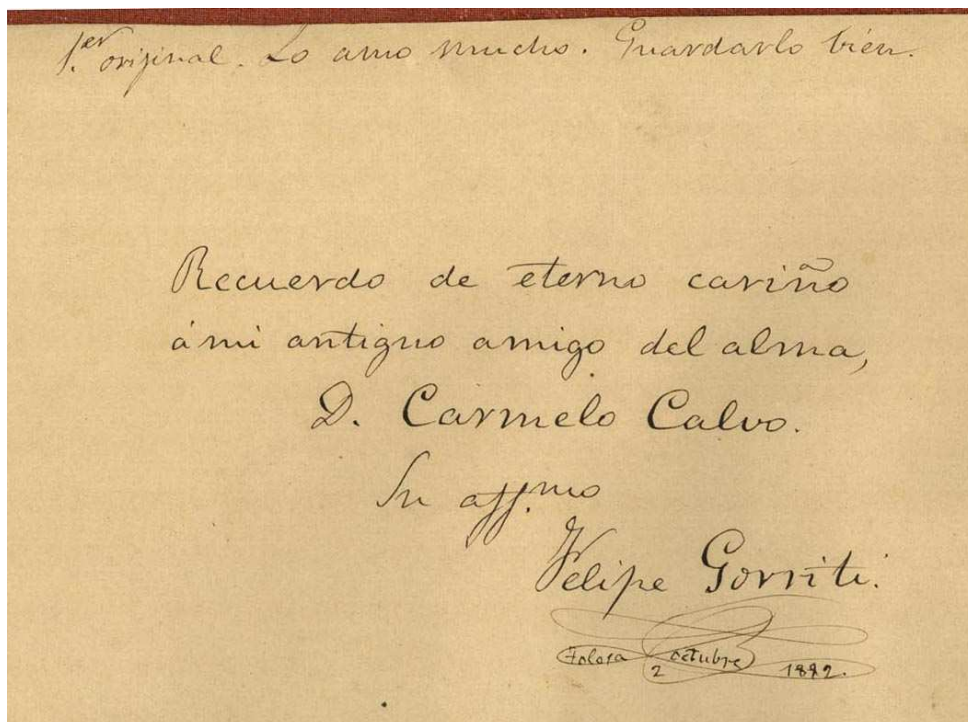 1.er original. Lo amo mucho. Guardarlo bién.
Recuerdo de eterno cariño
á mi antiguo amigo del alma,
D. Carmelo Calvo.
Su aff.mo
Felipe Gorriti.
Tolosa 2 octubre 1882.